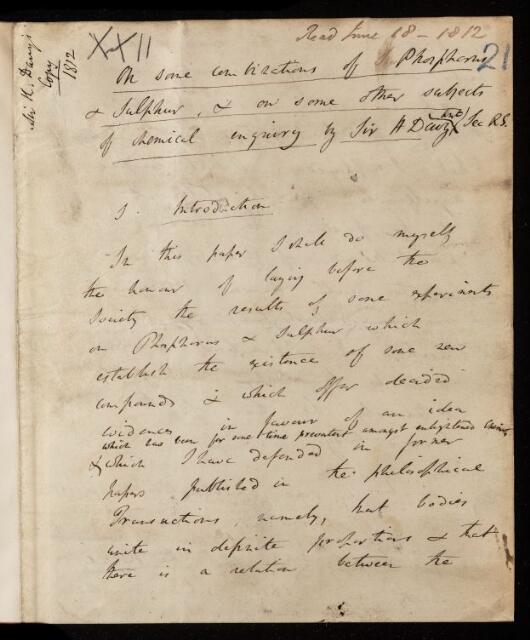 Sir H. Davy's
Copy
1812
XXII
Read June 18 - 1812
21
On some combinations of Phosphorus
& Sulphur, & on some other subjects
of chemical enquiry by Sir H Davy Sec R.S.
1. Introduction
In this paper I shall do myself
the honour of laying before the
Society the results of some experiments
on Phosphorus & Sulphur which
establish the existence of some new
compounds & which offer decided
evidences in favour of an idea
which has been for some time prevalent amongst enlightened
& which I have defended in former
papers published in the philosophical
Transactions, namely, that bodies
unite in definite proportions & that
there is a relation between the